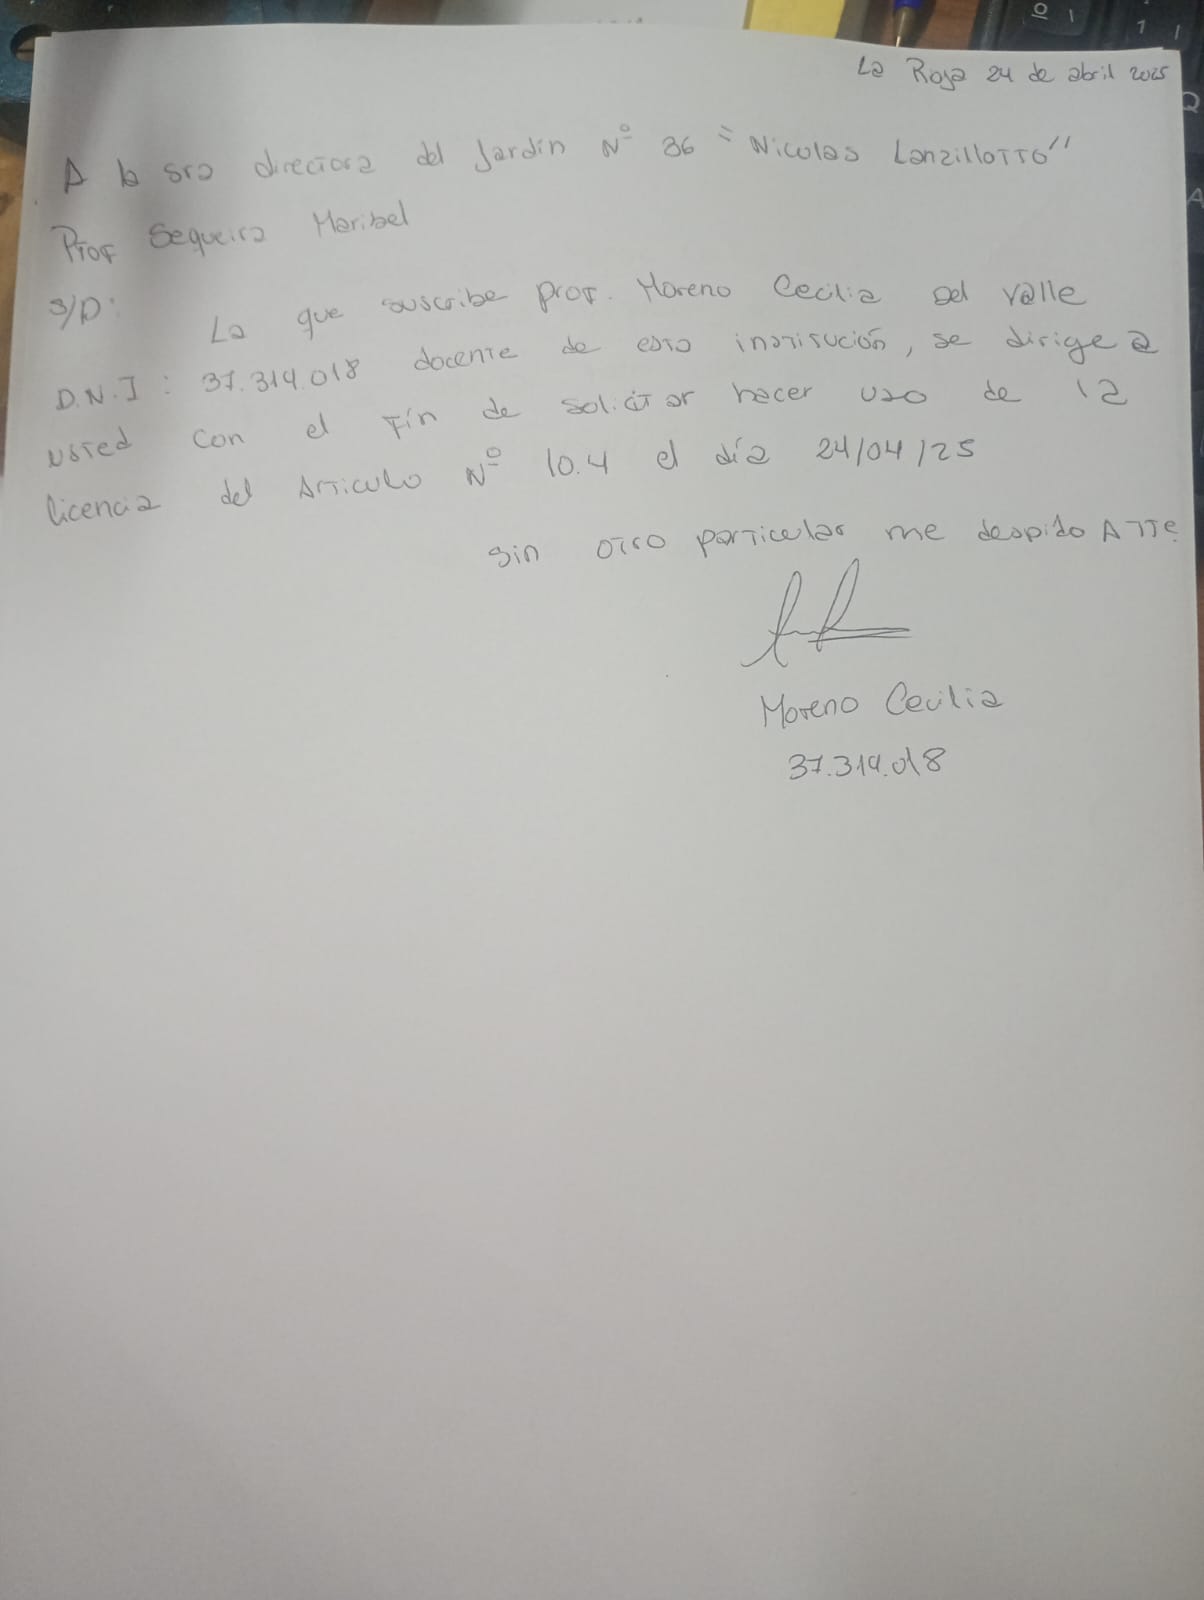 La Rioja 24 de abril 2025
A la sra directora del Jardín N° 36 "Nicolas Lanzillotto"
Prof Sequeira Maribel
S/D:
La que suscribe prof. Moreno Cecilia del Valle
D.N.I: 37.314.018 docente de esta institución, se dirige a
usted con el fin de solicitar hacer uso de la
licencia del Articulo N° 10.4 el día 24/04/25
Sin otro particular me despido Atte
Moreno Cecilia
37.314.018